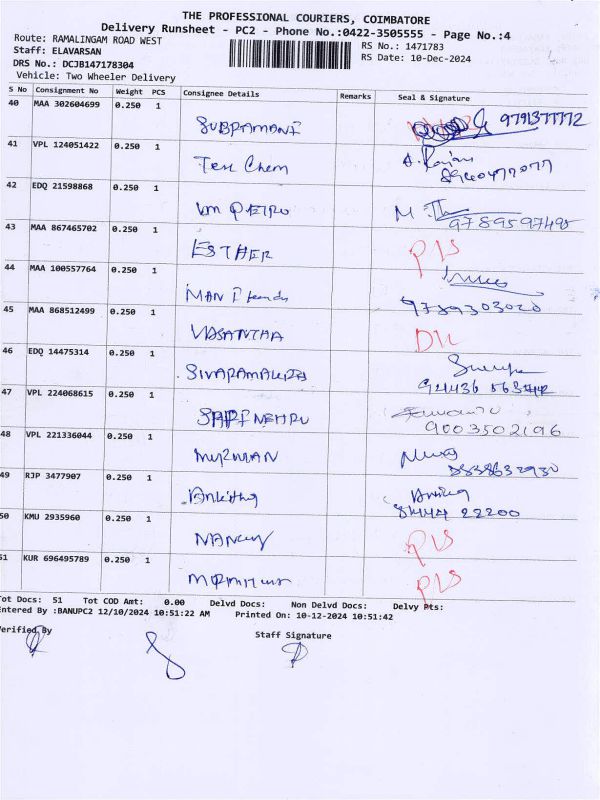 THE PROFESSIONAL COURIERS, COIMBATORE
Delivery Runsheet - PC2 - Phone No.:0422-3505555 - Page No.:4
Route: RAMALINGAM ROAD WEST
RS No.: 1471783
Staff: ELAVARSAN
RS Date: 10-Dec-2024
DRS No.: DCJB147178304
Vehicle: Two Wheeler Delivery
S No Consignment No Weight PCS Consignee Details Remarks Seal & Signature
40 MAA 302604699 0.250 1
SUBRAMANI 9791377772
41 VPL 124051422 0.250 1
Tex Chem
42 EDQ 21598868 0.250 1
VM PETRO 9789597495
43 MAA 867465702 0.250 1
ESTHER PLS
44 MAA 100557764 0.250 1
MAN 9789303020
45 MAA 868512499 0.250 1
VASANTHA DL
46 EDQ 14475314 0.250 1
47 VPL 224068615 0.250 1
9003502196
48 VPL 221336044 0.250 1
9838632930
49 RJP 3477907 0.250 1
Ankitha
81444 22200
50 KMU 2935960 0.250 1
NANCY PLS
51 KUR 696495789 0.250 1
PLS
Tot Docs: 51 Tot COD Amt: 0.00 Delvd Docs: Non Delvd Docs: Delvy Pts:
Entered By :BANUPC2 12/10/2024 10:51:22 AM Printed On: 10-12-2024 10:51:42
Verified By
Staff Signature